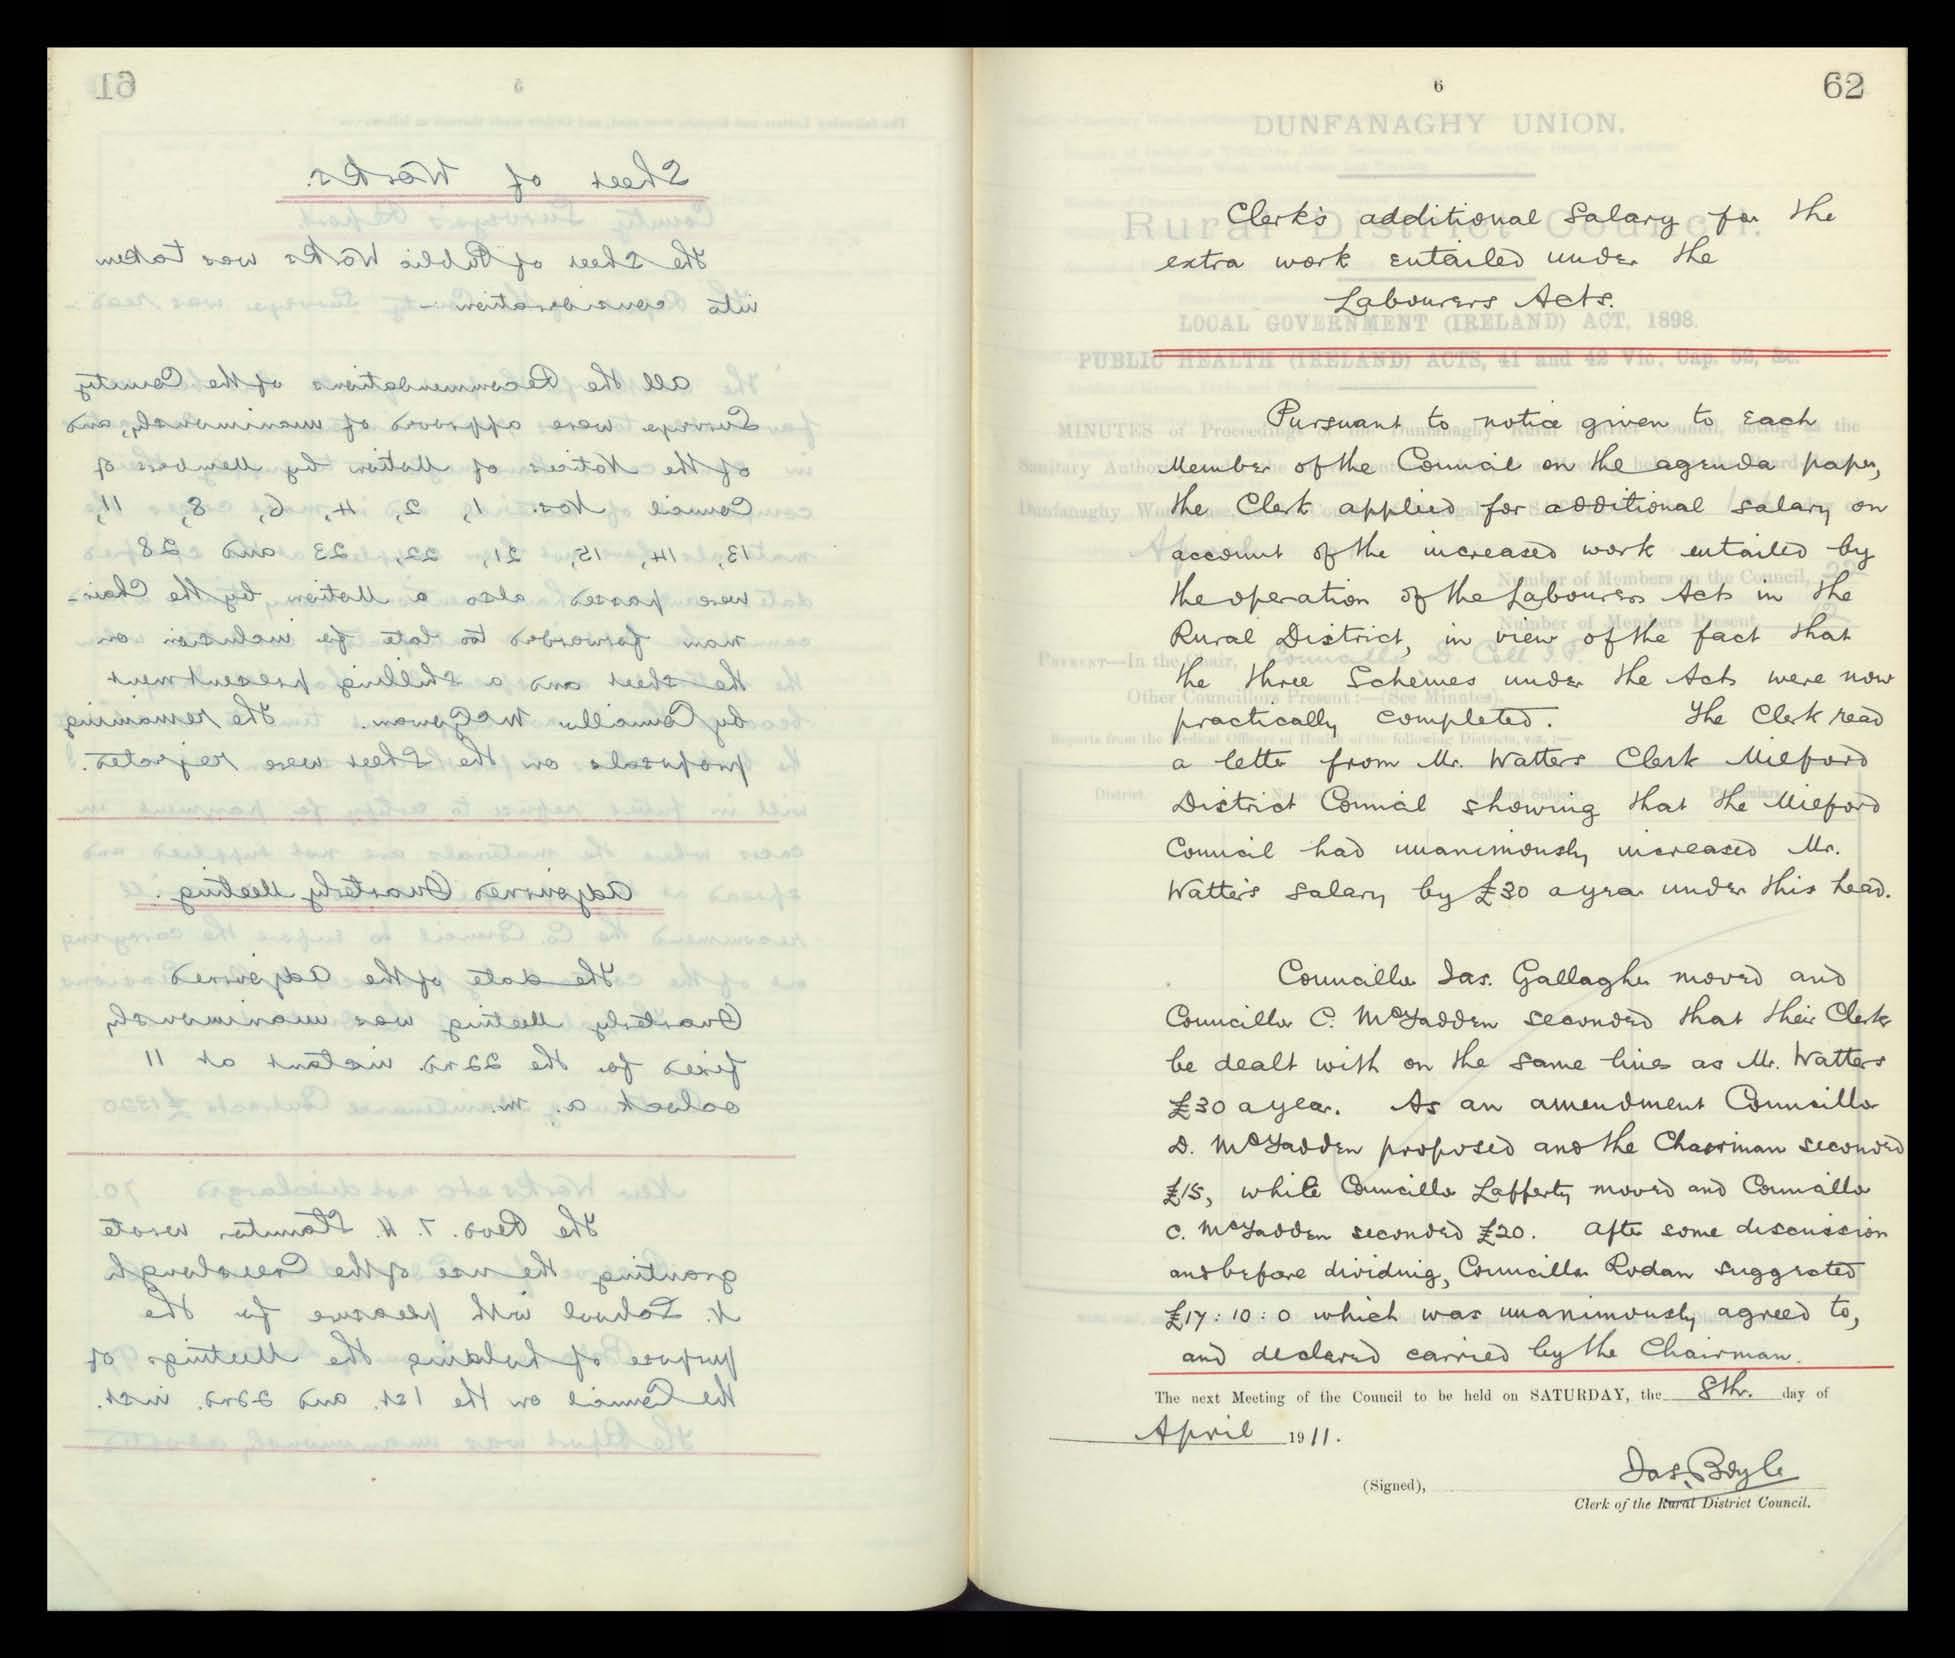 61
5
Sheet of Works.
The Sheet of Public Works was taken
into consideration :-
All the Recommendations of the County
Surveyor were approved of unanimously, and
of the Notices of Motion by Members of
Council Nos. 1, 2, 4, 6, 8, 11,
13, 14, 15, 21, 22, 23 and 28
were passed also a Motion, by the Chair-
man forwarded too late for inclusion on
the sheet and a shilling presentment
by Councillor McGowan. The remaining
proposals on the Sheet were rejected.
Adjourned Quarterly Meeting.
The date of the Adjourned
Quarterly Meeting was unanimously
fixed for the 22nd. instant at 11
oclock a. m.
The Revd. T. H. Stanton wrote
granting the use of the Creeslough
N. School with pleasure for the
purpose of holding the Meetings of
the Council on the 1st. and 22nd. inst.
6
62
DUNFANAGHY UNION.
Rural District Council.
Clerk's additional Salary for the
extra work entailed under the
Labourers Acts.
LOCAL GOVERNMENT (IRELAND) ACT, 1898.
PUBLIC HEALTH (IRELAND) ACTS, 41 and 42 Vic., Cap. 52, &c.
Pursuant to notice given to each
Member of the Council on the agenda paper,
the Clerk applied for additional salary on
account of the increased work entailed by
the operation of the Labourers Acts in the
Rural District, in view of the fact that
the three Schemes under the Acts were now
practically completed. The Clerk read
a letter from Mr. Watters Clerk Milford
District Council showing that the Milford
Council had unanimously increased Mr.
Watter's salary by £30 a year under this head.
Councillor Jas. Gallagher moved and
Councillor C. McFadden seconded that their Clerk
be dealt with on the same lines as Mr. Watters
£30 a year. As an amendment Councillor
D. McFadden proposed and the Chairman seconded
£15, while Councillor Lafferty moved and Councillor
C. McFadden seconded £20. After some discussion
and before dividing, Councillor Rodan suggested
£17:10:0 which was unanimously agreed to,
and declared carried by the Chairman.
The next Meeting of the Council to be held on SATURDAY, the 8th. day of
April 1911.
(Signed), Jas. Boyle
Clerk of the Rural District Council.